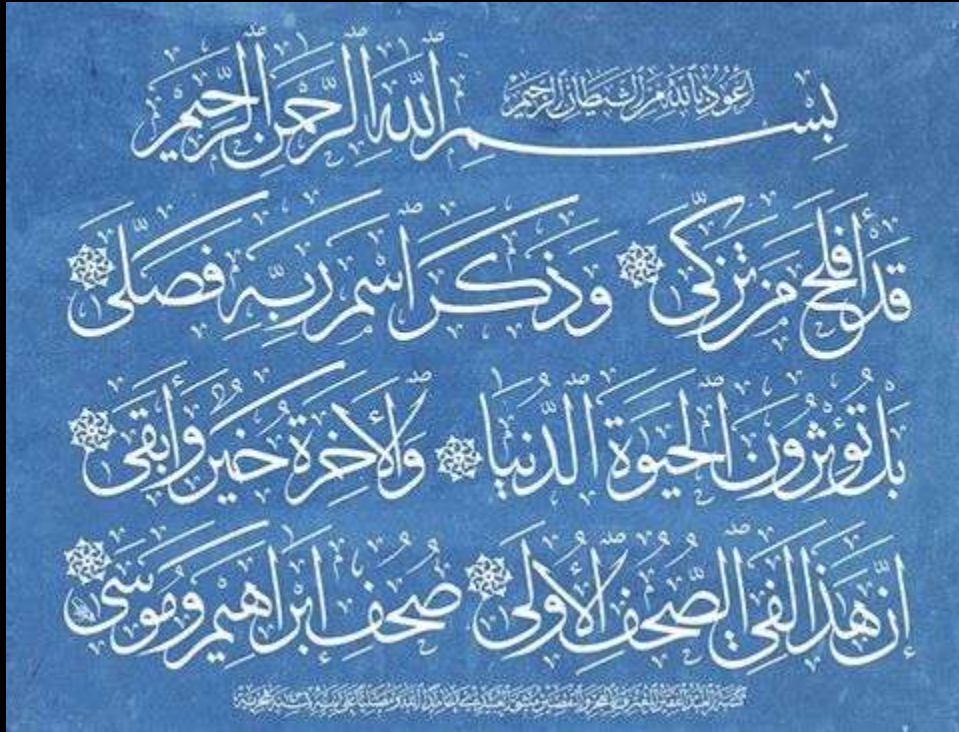 أَعُوذُ بِاللهِ مِنَ الشَّيْطَانِ الرَّجِيمِ
بِسْمِ اللهِ الرَّحْمٰنِ الرَّحِيمِ
قَدْ أَفْلَحَ مَنْ تَزَكَّى ۞ وَذَكَرَ اسْمَ رَبِّهِ فَصَلَّى ۞
بَلْ تُؤْثِرُونَ الْحَيٰوةَ الدُّنْيَا ۞ وَالْأٰخِرَةُ خَيْرٌ وَأَبْقَى ۞
إِنَّ هٰذَا لَفِي الصُّحُفِ الْأُولَى ۞ صُحُفِ إِبْرَاهِيمَ وَمُوسَى ۞